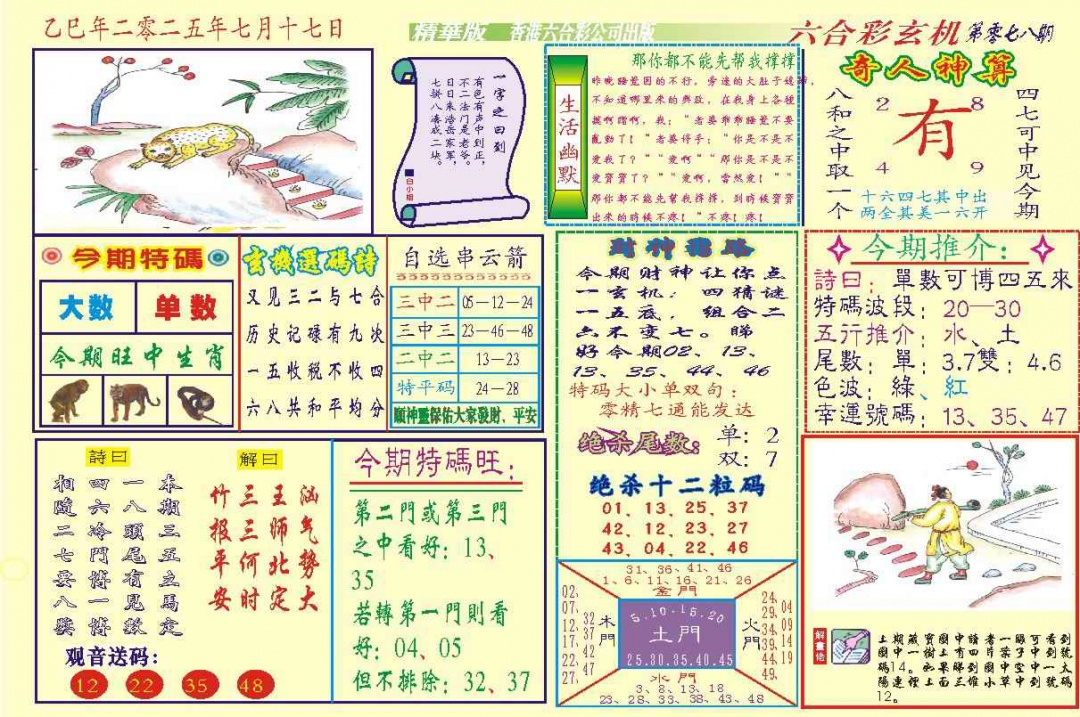 乙巳年二零二五年七月十七日
精華版 香港六合彩公司出版
六合彩玄机 第零七八期
一字之曰到
有色有声中到正，
不二法门是老爷。
日日来浩岳家军，
七骈八凑成二块。
白小姐
生活幽默
那你都不能先帮我撑撑
昨晚睡觉困的不行。旁边的大肚子媳妇，
不知道哪里来的兴致，在我身上各种
摸啊蹭啊，我：“老婆乖乖睡觉不要
乱动了！”老婆停手：“你是不是不
爱我了？”“爱啊”“那你是不是不
爱宝宝了？”“爱啊，当然爱！”“
那你都不能先帮我撑撑，到时候宝宝
出来的时候不疼！”不疼！疼！
奇人神算
八和之中取一个
四七可中见今期
2 8
有
4 9
十六四七其中出
两全其美一六开
今期特碼
大数 单数
今期旺中生肖
玄機選碼詩
又见三二与七合
历史记碌有九次
一五收税不收四
六八共和平均分
自选串云箭
三中二 05—12—24
三中三 23—46—48
二中二 13—23
特平码 24—28
順神靈保佑大家發財、平安
今期财神让你点
一玄机：四猜谜
一五底，组合二
六不变七。睇
好今期02、13、
13、35、44、46
特码大小单双句：
零精七通能发达
绝杀尾数：
单：2
双：7
绝杀十二粒码
01、13、25、37
42、12、23、27
43、04、22、46
今期推介：
詩曰：單數可博四五來
特碼波段：20—30
五行推介：水、土
尾數：單：3.7雙：4.6
色波：綠、紅
幸運號碼：13、35、47
詩曰
本期三五立馬定
一八頭尾有見數
四六冷門博一博
相隨二七要八獎
解曰
汹气势大
王师北定
三三何时
竹报平安
观音送码：
12 22 35 48
今期特碼旺：
第二門或第三門
之中看好：13、
35
若轉第一門則看
好：04、05
但不排除：32、37
31、36、41、46
1、6、11、16、21、26
金門
02、07、12、17、22、27、
32、37、42、47
木門
5.10.15.20
土門
25.30.35.40.45
火門
24、29、34、39、44、49、
04、09、14、19
水門
3、8、13、18
23、28、33、38、43、48
解畫佬
上期藏寶圖中請老一睇可看到
圖中一樹上有四片葉子中到號
碼14。如果睇到圖中空中一太
陽連裡上面三堆小草中到號碼
12。